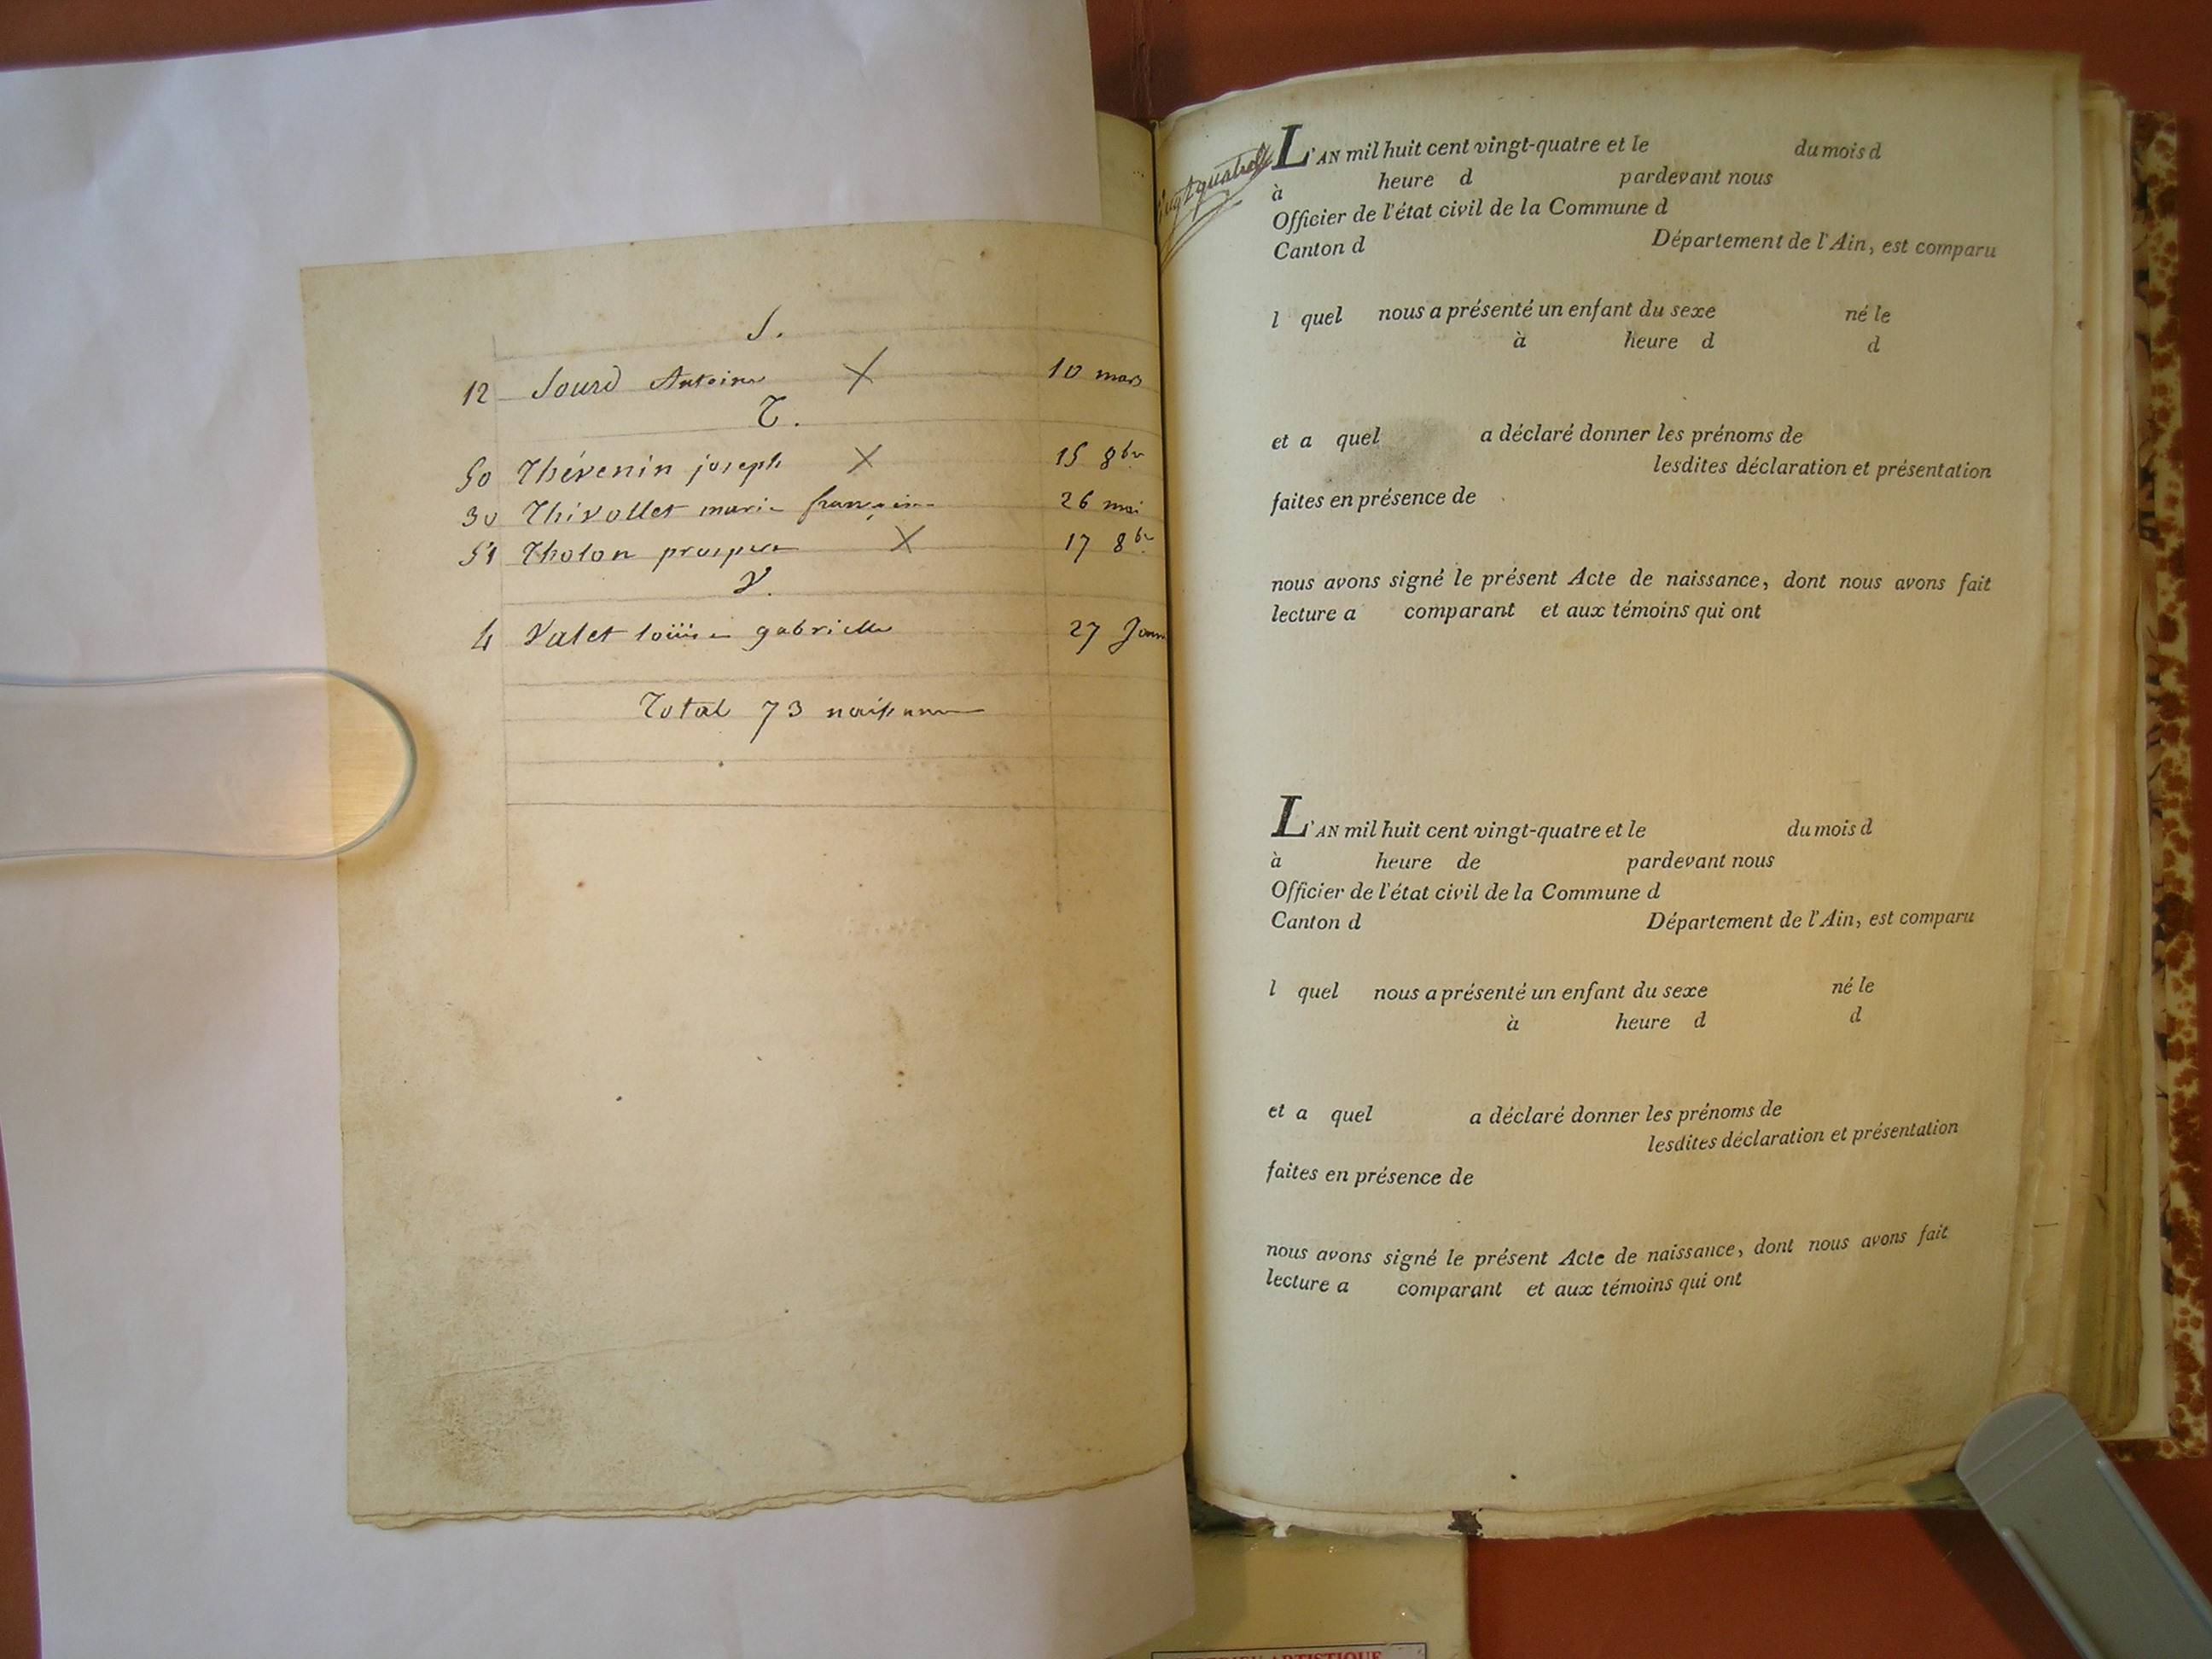 S.
12 Sourd Antoine X 10 mars
T.
50 Thévenin joseph X 15 8bre
30 Thivollet marie françoise 26 mai
51 Tholon prosper X 17 8bre
V.
4 Valet loüise gabrielle 27 Janv
Total 73 naissances
vingt quatre
L'AN mil huit cent vingt-quatre et le du mois d
à heure d pardevant nous
Officier de l'état civil de la Commune d
Canton d Département de l'Ain, est comparu
l quel nous a présenté un enfant du sexe né le
à heure d d
et a quel a déclaré donner les prénoms de
lesdites déclaration et présentation
faites en présence de
nous avons signé le présent Acte de naissance, dont nous avons fait
lecture a comparant et aux témoins qui ont
L'AN mil huit cent vingt-quatre et le du mois d
à heure de pardevant nous
Officier de l'état civil de la Commune d
Canton d Département de l'Ain, est comparu
l quel nous a présenté un enfant du sexe né le
à heure d d
et a quel a déclaré donner les prénoms de
lesdites déclaration et présentation
faites en présence de
nous avons signé le présent Acte de naissance, dont nous avons fait
lecture a comparant et aux témoins qui ont
ARTISTIQUE